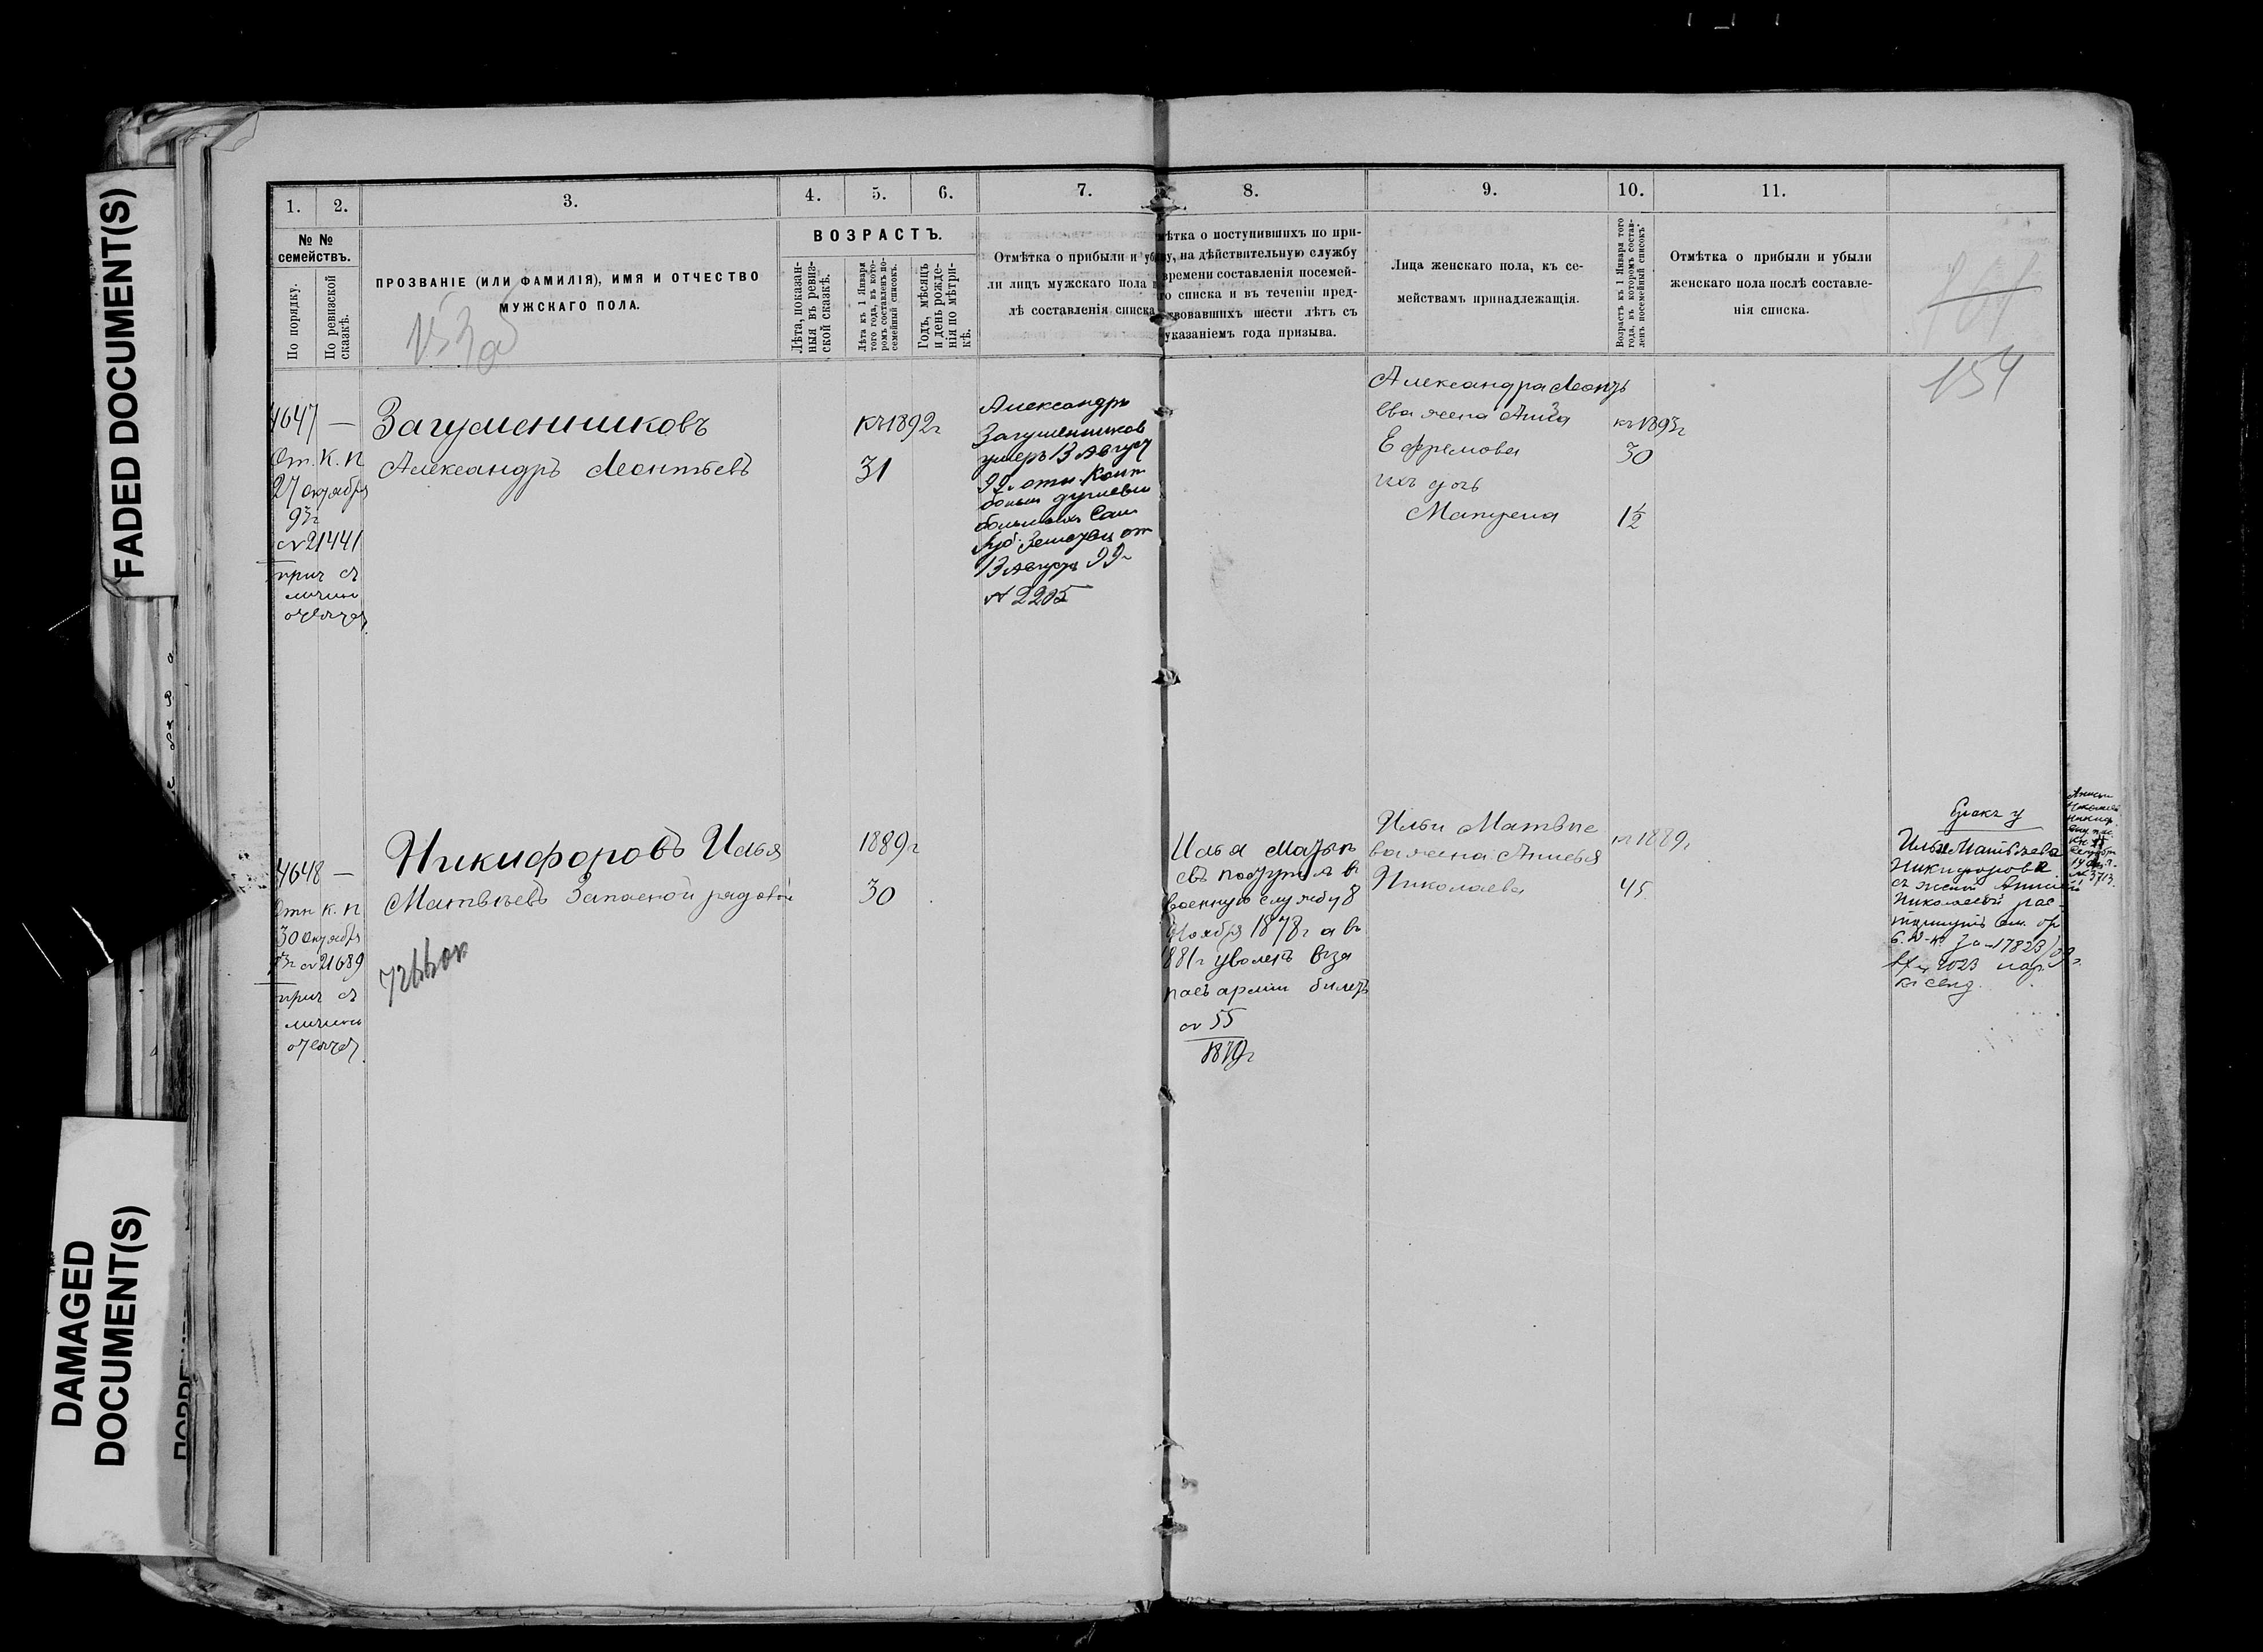 FADED DOCUMENT(S)
DAMAGED
DOCUMENT(S)
1.
2.
3.
4.
5.
6.
7.
8.
9.
10.
11.
№ №
семействъ.
По порядку.
По ревизской
сказкѣ.
ПРОЗВАНІЕ (ИЛИ ФАМИЛІЯ), ИМЯ И ОТЧЕСТВО
МУЖСКАГО ПОЛА.
ВОЗРАСТЪ.
Лѣта, показан-
ныя въ ревиз-
ской сказкѣ.
Лѣта къ 1 Января
того года, въ кото-
ромъ составленъ по-
семейный списокъ.
Годъ, мѣсяцъ
и день рожде-
нія по метри-
кѣ.
Отмѣтка о прибыли и убы
ли лицъ мужскаго пола
лѣ составленія списка
мѣтка о поступившихъ по при-
ву, на дѣйствительную службу
времени составленія посемей-
го списка и въ теченіи пред-
твовавшихъ шести лѣтъ съ
указаніемъ года призыва.
Лица женскаго пола, къ се-
мействамъ принадлежащія.
Возрастъ къ 1 Января того
года, въ которомъ состав-
ленъ посемейный списокъ.
Отмѣтка о прибыли и убыли
женскаго пола послѣ составле-
нія списка.
154
4647 —
От. К. П
27 октября
93г
№ 21441
прич съ
Загуменниковъ
Александръ Леонтьевъ
къ 1892г
31
Александръ
Загуменников
умеръ 13 Август
99г отн. Конт
больн душевн
больныхъ Сам
Губ. Земства от
13 Августа 99г
№ 2205
Александра Леонть
ева жена Анна
Ефремова
ихъ дочь
Матрена
къ 1893г
30
1½
4648 —
Отн К. П
30 октября
93г № 21689
прич съ
Никифоровъ Илья
Матвѣевъ Запасной рядовой
1889г
30
Илья Матвѣ
евъ поступилъ въ
военную службу 8
Ноября 1878г а въ
1881г уволенъ въ за
пасъ арміи билетъ
№ 55
1879г
Ильи Матвѣе
ва жена Анисья
Николаева
къ 1889г
45
Бракъ у
Ильи Матвѣева
Никифорова
съ женой Анисьей
Николаевой рас-